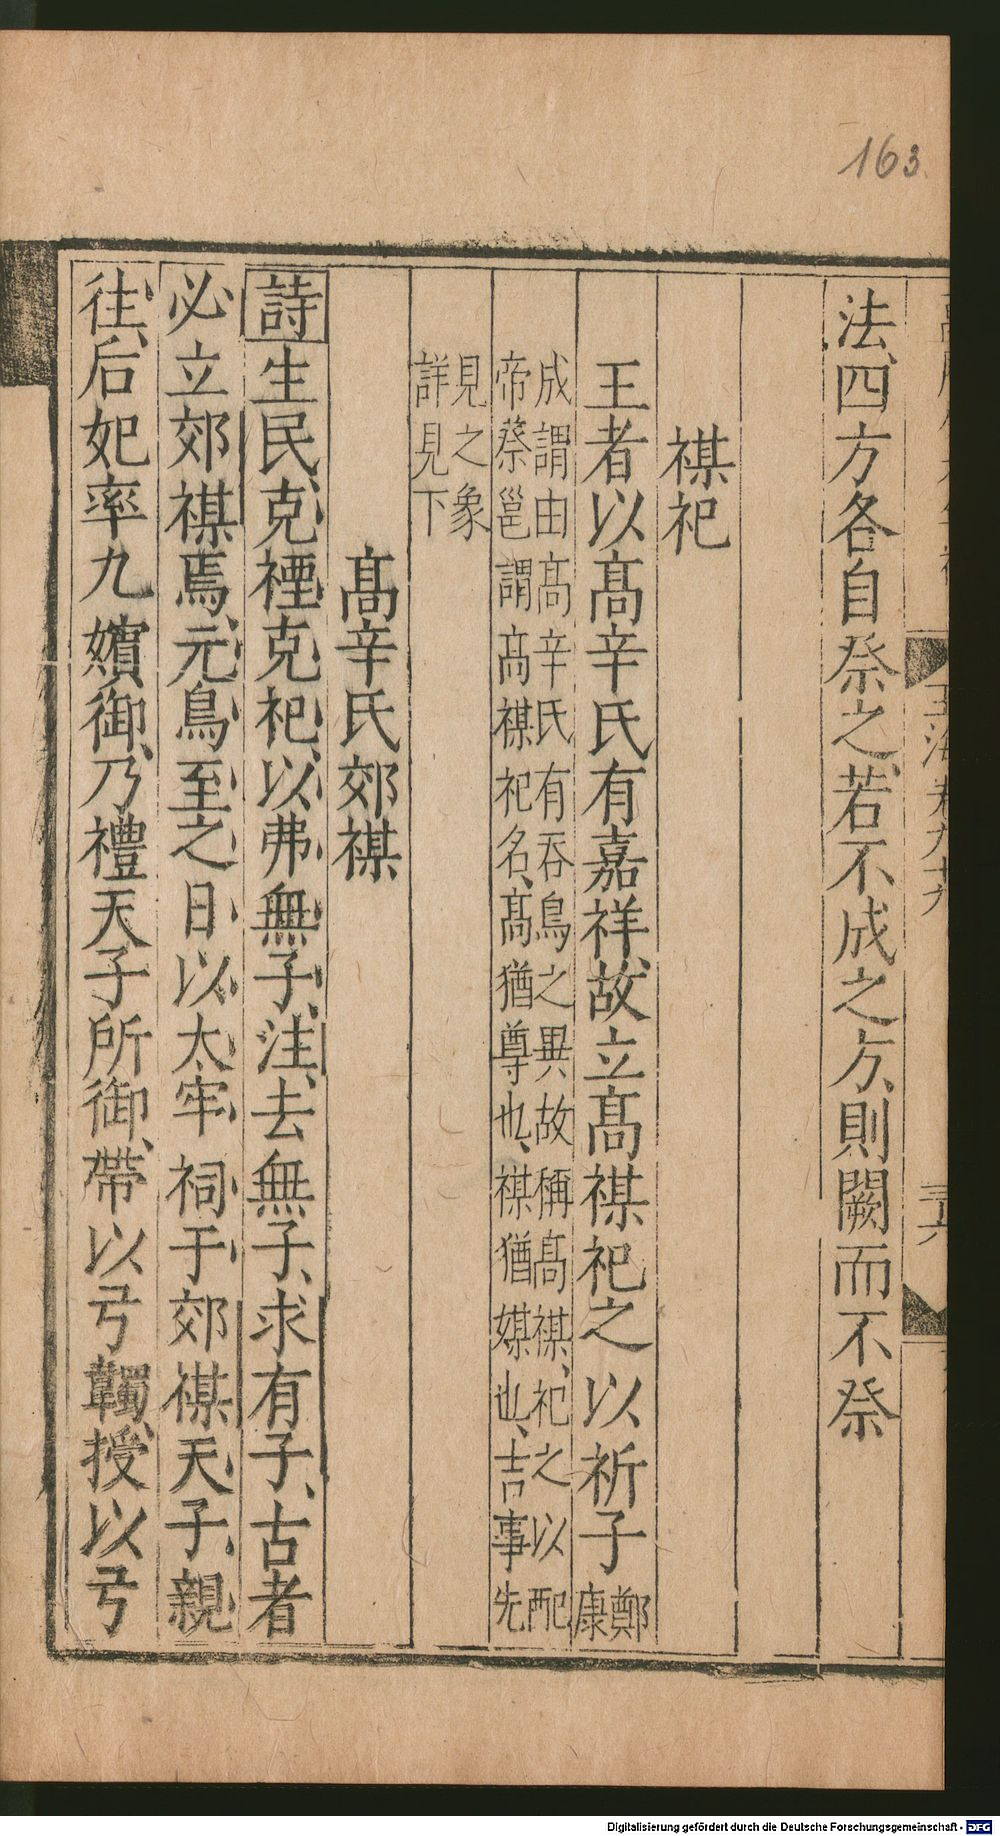 163
玉海卷九十九
三十六
法四方各自祭之若不成之方則闕而不祭
禖祀
王者以髙辛氏有嘉祥故立髙禖祀之以祈子鄭康
成謂由髙辛氏有吞鳥之異故稱髙禖祀之以配
帝蔡邕謂髙禖祀名髙猶尊也禖猶媒也吉事先
見之象
詳見下
髙辛氏郊禖
詩生民克禋克祀以弗無子注去無子求有子古者
必立郊禖焉元鳥至之日以太牢祠于郊禖天子親
往后妃率九嬪御乃禮天子所御帶以弓韣授以弓
Digitalisierung gefördert durch die Deutsche Forschungsgemeinschaft - DFG